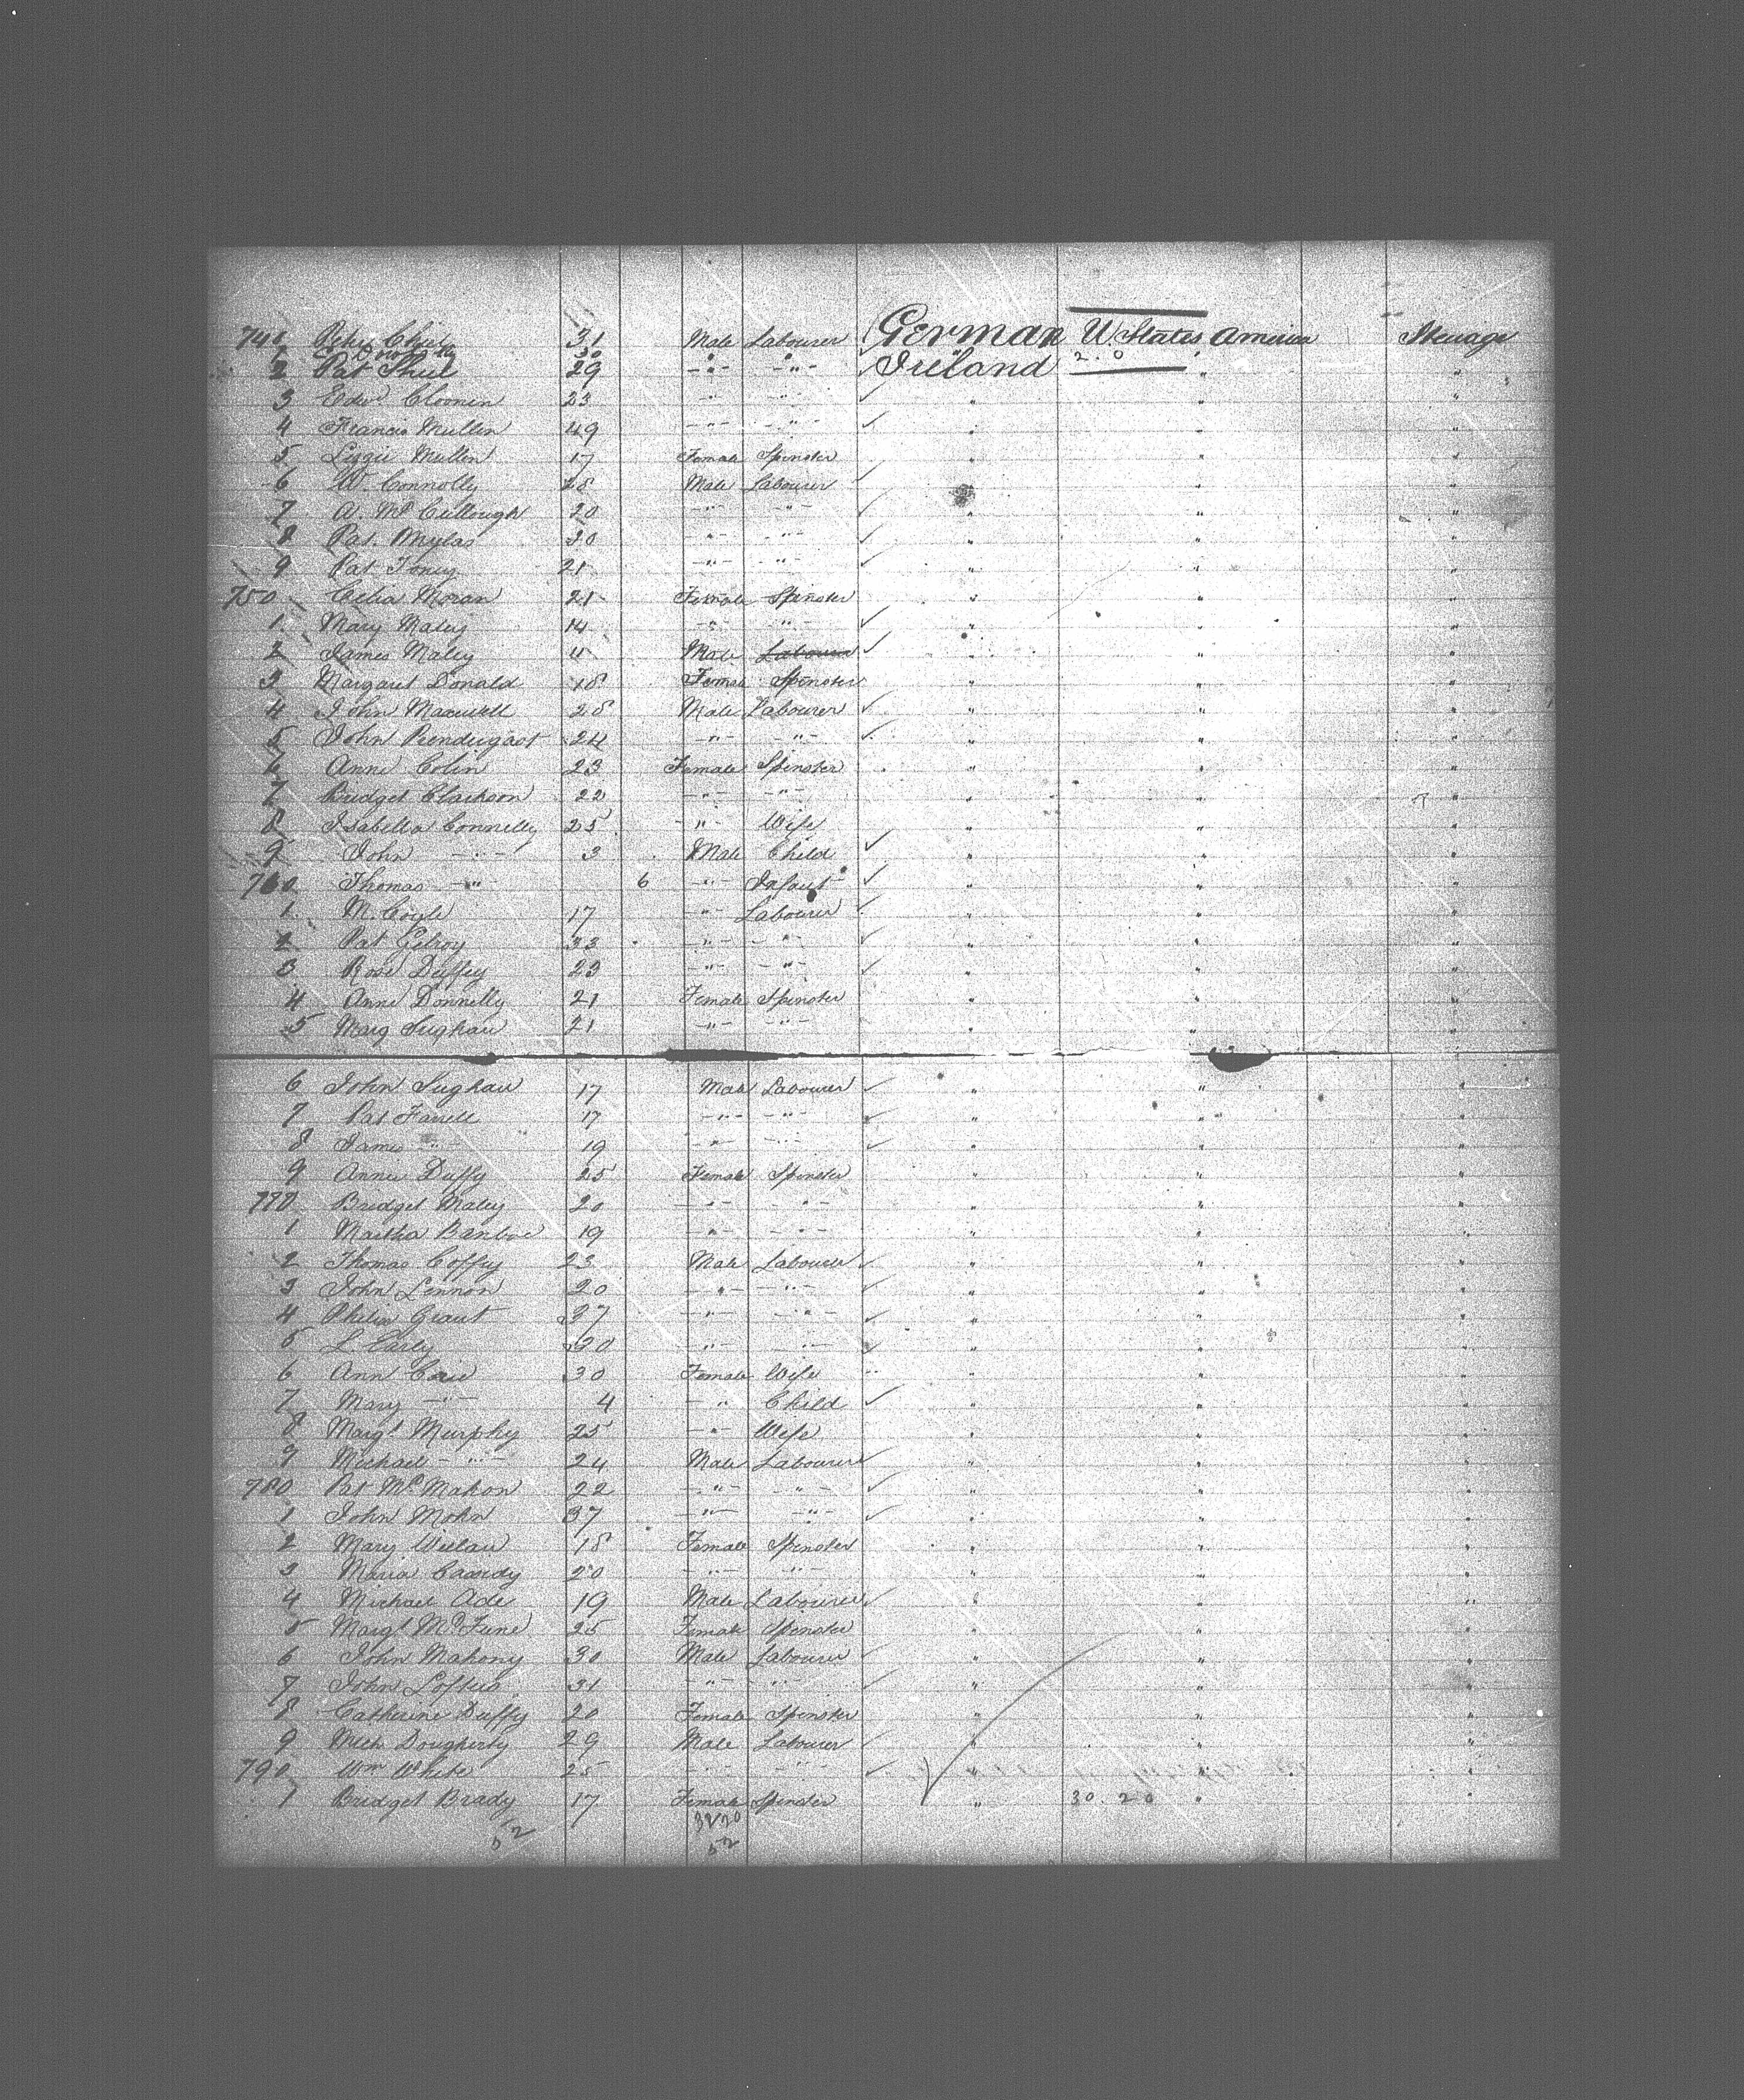 741 Peter Chiel 31 Male Labourer German U. States America Steerage
1 30 " "
2 Pat Shiel 29 -"- -"- Ireland 2.0 " "
3 Edwd Cloonen 23 -"- -"- " " "
4 Francis Mullen 49 -"- -"- " " "
5 Lizzie Mullen 17 Female Spinster " " "
6 W. Connolly 28 Male Labourer " " "
7 A. McCullough 20 -"- -"- " " "
8 Pat. Mylas 30 -"- -"- " " "
9 Pat Toney 21 -"- -"- " " "
750 Celia Moran 21 Female Spinster " " "
1 Mary Maley 14 -"- -"- " " "
2 James Maley 11 Male Labourer " " "
3 Margaret Donald 18 Female Spinster " " "
4 John Maxwell 28 Male Labourer " " "
5 John Prendergast 24 -"- -"- " " "
6 Anne Colin 23 Female Spinster " " "
7 Bridget Clarkson 22 -"- -"- " " "
8 Isabella Connelly 25 -"- Wife " " "
9 John -"- 3 Male Child " " "
760 Thomas -"- 6 -"- Infant " " "
1 M. Coyle 17 -"- Labourer " " "
2 Pat Gilroy 33 -"- -"- " " "
3 Rose Duffey 23 -"- -"- " " "
4 Anne Donnelly 21 Female Spinster " " "
5 Marg Sughau 21 -"- -"- " " "
6 John Sughau 17 Male Labourer " " "
7 Pat Farrell 17 -"- -"- " " "
8 James -"- 19 -"- -"- " " "
9 Anne Duffy 25 Female Spinster " " "
770 Bridget Maley 20 -"- -"- " " "
1 Martha 19 -"- -"- " " "
2 Thomas Coffey 23 Male Labourer " " "
3 John Lennon 20 -"- -"- " " "
4 Philip Grant 37 -"- -"- " " "
5 L. Early 30 -"- -"- " " "
6 Ann 30 Female Wife " " "
7 Mary -"- 4 -"- Child " " "
8 Margt Murphy 25 -"- Wife " " "
9 Michael -"- 24 Male Labourer " " "
780 Pat McMahon 22 -"- -"- " " "
1 John Mohn 37 -"- -"- " " "
2 Mary Weelan 18 Female Spinster " " "
3 Maria Cassidy 20 -"- -"- " " "
4 Michael Ade 19 Male Labourer " " "
5 Margt McFune 25 Female Spinster " " "
6 John Mahony 30 Male Labourer " " "
7 John Loftus 31 -"- -"- " " "
8 Catherine Duffy 20 Female Spinster " " "
9 Mich Dougherty 29 Male Labourer " " "
790 Wm White 25 -"- -"- " " "
1 Bridget Brady 17 Female Spinster " 30.20 " "
52 52